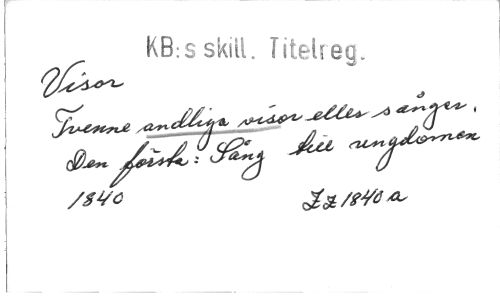 KB:s skill. Titelreg.
Visor
Tvenne andliga visor eller sånger.
Den första: Sång till ungdomen
1840 Zz 1840 a